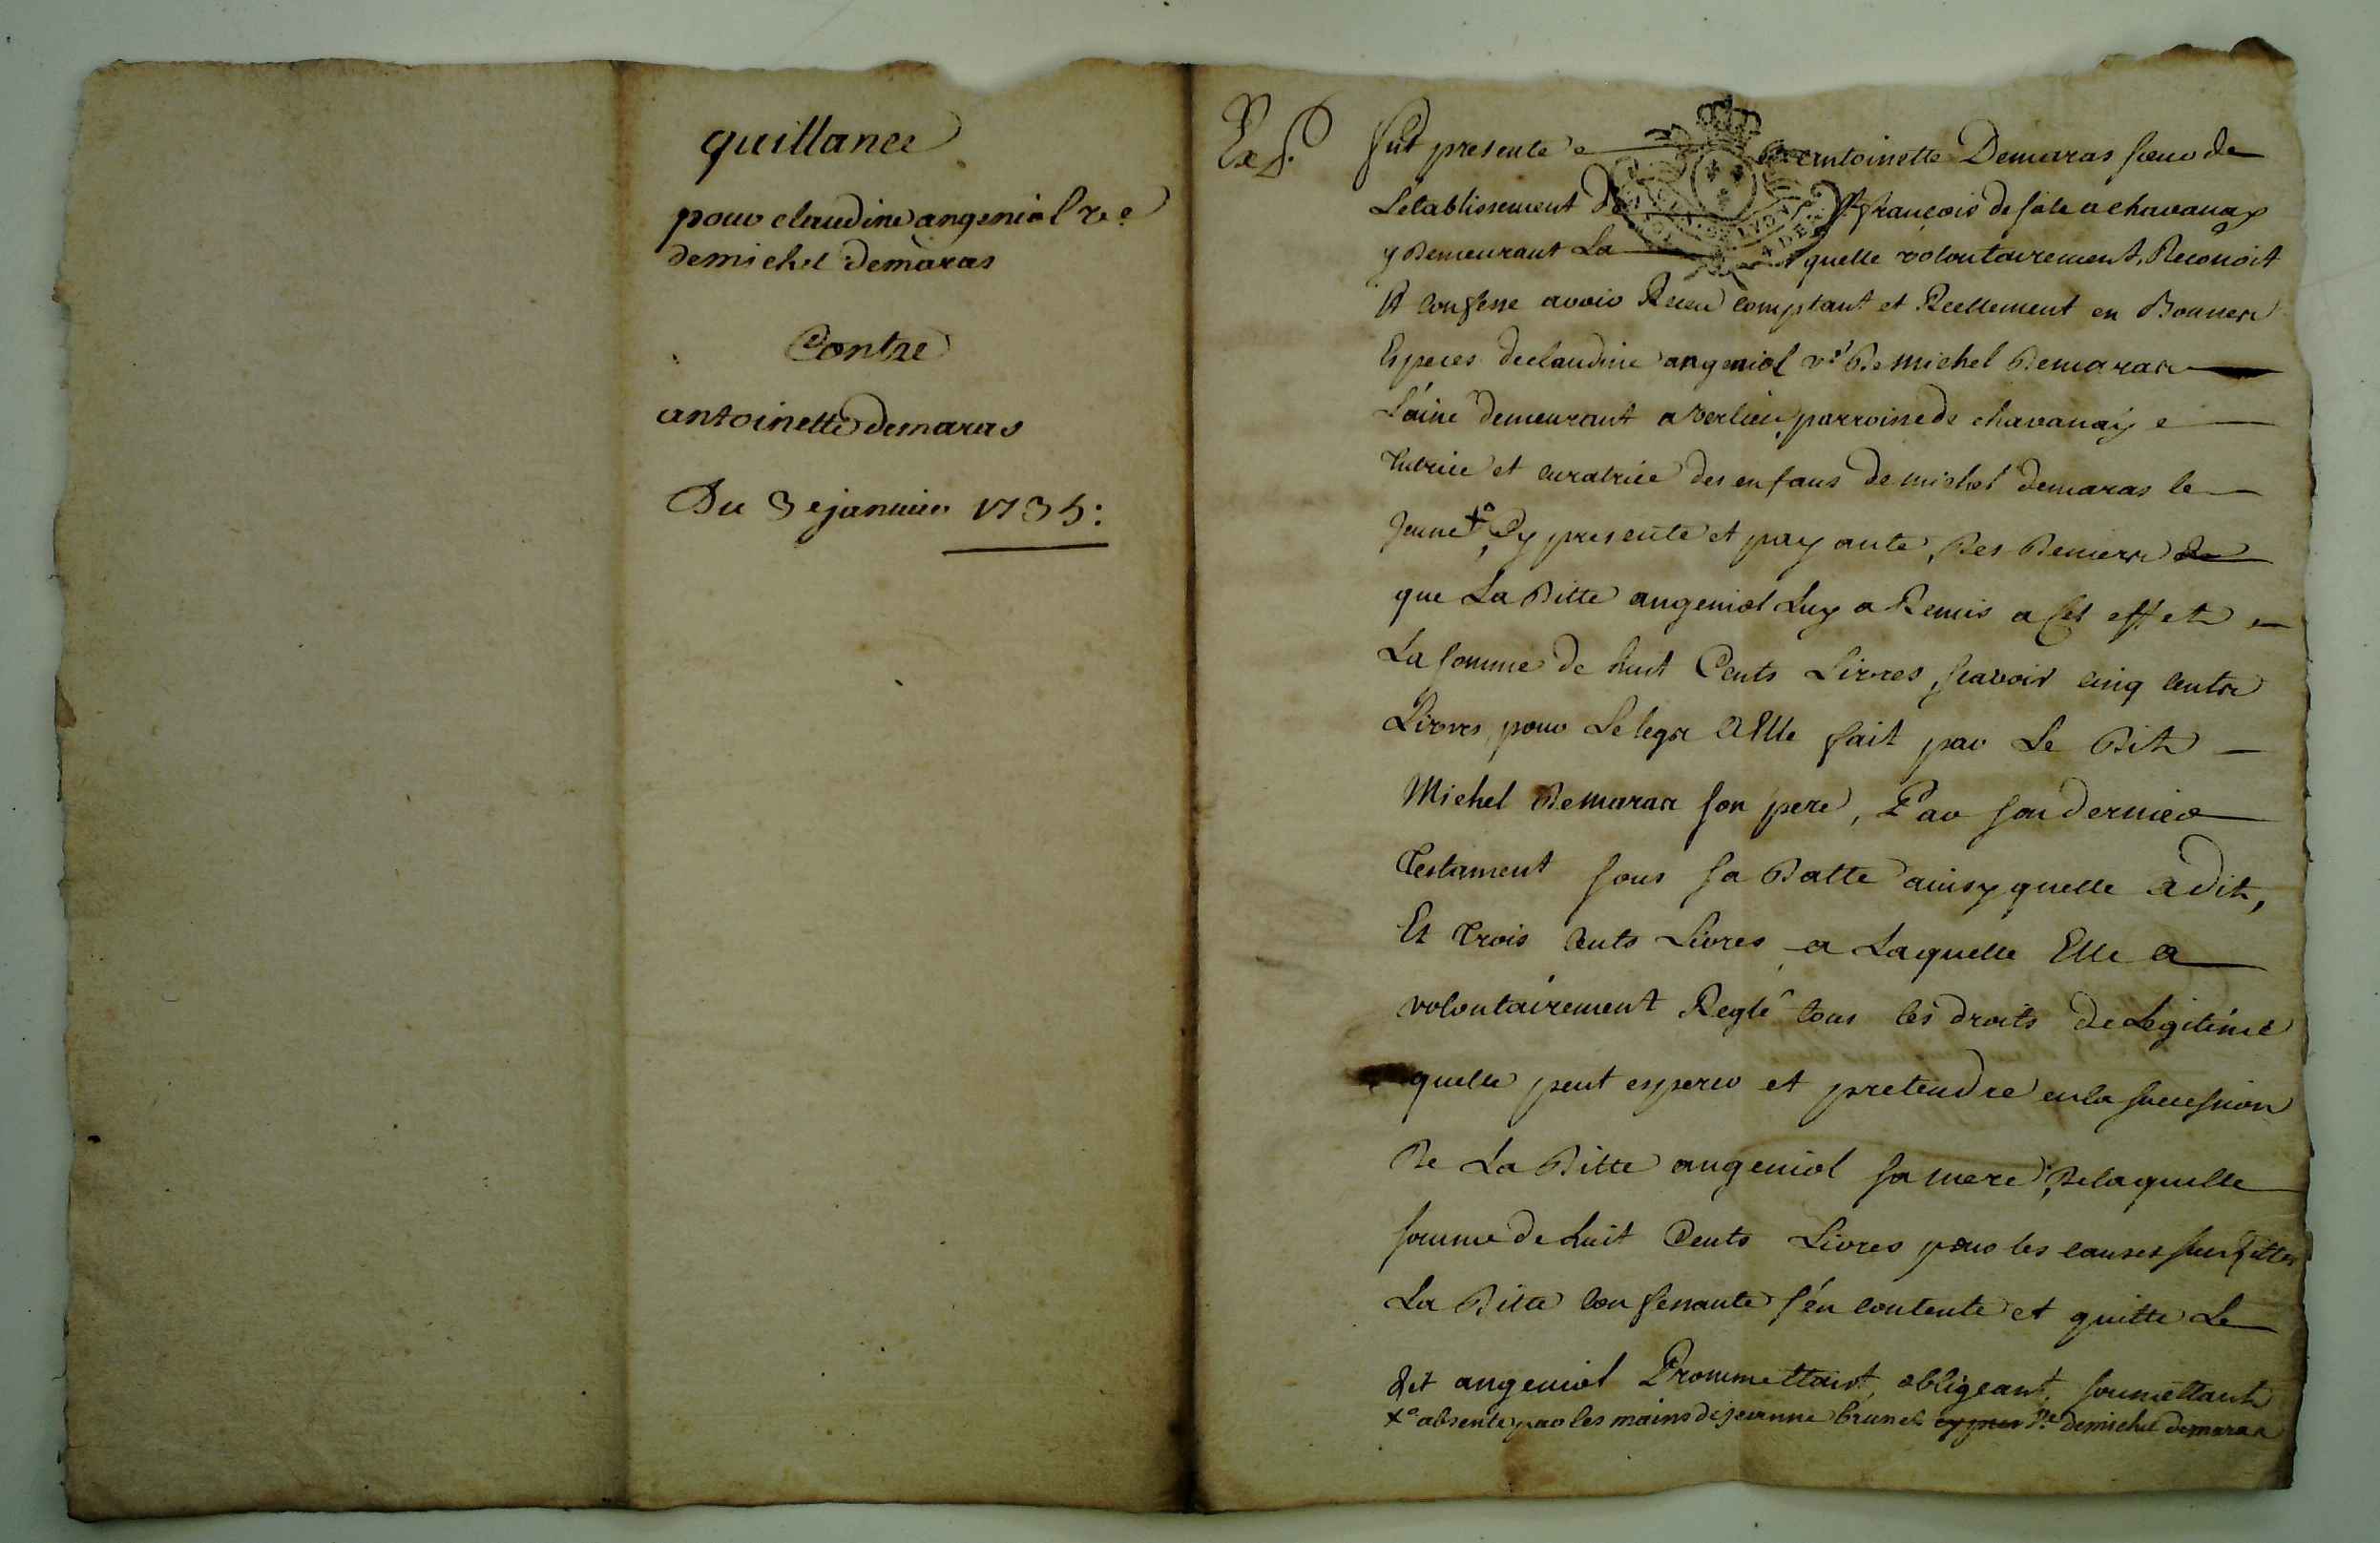 quittance
pour claudine angeniol v.e
de michel demaras
Contre
antoinette demaras
Du 3e janvier 1735:
Fut presente antoinette Demaras sœur de
L'etablissement De St françois de sale a chavanay
y Demeurant La quelle volontairement, Reconoit
Et confesse avoir Receu comptant et Reellement en Bonnes
Especes de claudine angeniol v.e De Michel Demaras
L'ainé demeurant a verlieu, parroisse de chavanay
tutrice et curatrice des enfans de michel demaras le
Jeune +a, Cy presente et payante, Des Deniers
que La Ditte angeniol Luy a Remis a Cet effet
La somme de huit Cents Livres, scavoir cinq cents
Livres, pour Le legs a Elle fait par Le Dit
Michel Demaras son pere, Par son dernier
Testament sous sa Datte ainsy quelle a dit,
Et trois cents Livres a Laquelle Elle a
volontairement Reglé tous les droits de Legitime
quelle peut esperer et pretendre en la succession
De La Ditte angeniol sa mere, De laquelle
somme de huit Cents Livres pour les causes susdittes
La Ditte confessante s'en contente et quitte La
dit angeniol Prommettant, obligeant, soumettant
+a absente par les mains de jeanne brunel v.e de michel demaras